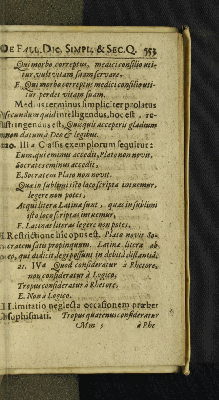 DE FALL. DIC. SIMPL. & SEC. Q. 553
Qui morbo correptus, medici consilio uti-
tur, vult vitam suam servare.
E. Qui morbo correptus medici consilio uti-
tur perdet vitam suam.
Medius terminus simpliciter prolatus
secundum quid intelligendus, hoc est, re-
stringendus est, Quicquid acceperis gladium
non datum à Deo & legibus.
20. IIIæ Classis exemplorum sequitur:
Eum, qui eminus accedit, Plato non novit,
Socrates eminus accedit,
E. Socratem Plato non novit.
Quæ in sublimi isto loco scripta locuemur,
legere non potes,
Atqui literæ Latinæ sunt, quæ in sublimi
isto loco scriptas intuemur,
F. Latinas literas legere non potes,
Restrictione hic opus est. Plato novit So-
cratem satis propinquum. Latinæ literæ ab
eo, qui didicit legi possunt in debitâ distantiâ.
21. IVæ Quod consideratur à Rhetore,
non consideratur à Logico,
Tropus consideratur à Rhetore,
E. Non à Logico.
Limitatio neglecta occasionem præbet
sophismati. Tropus quatenus consideratur
Mm 5 à Rhe